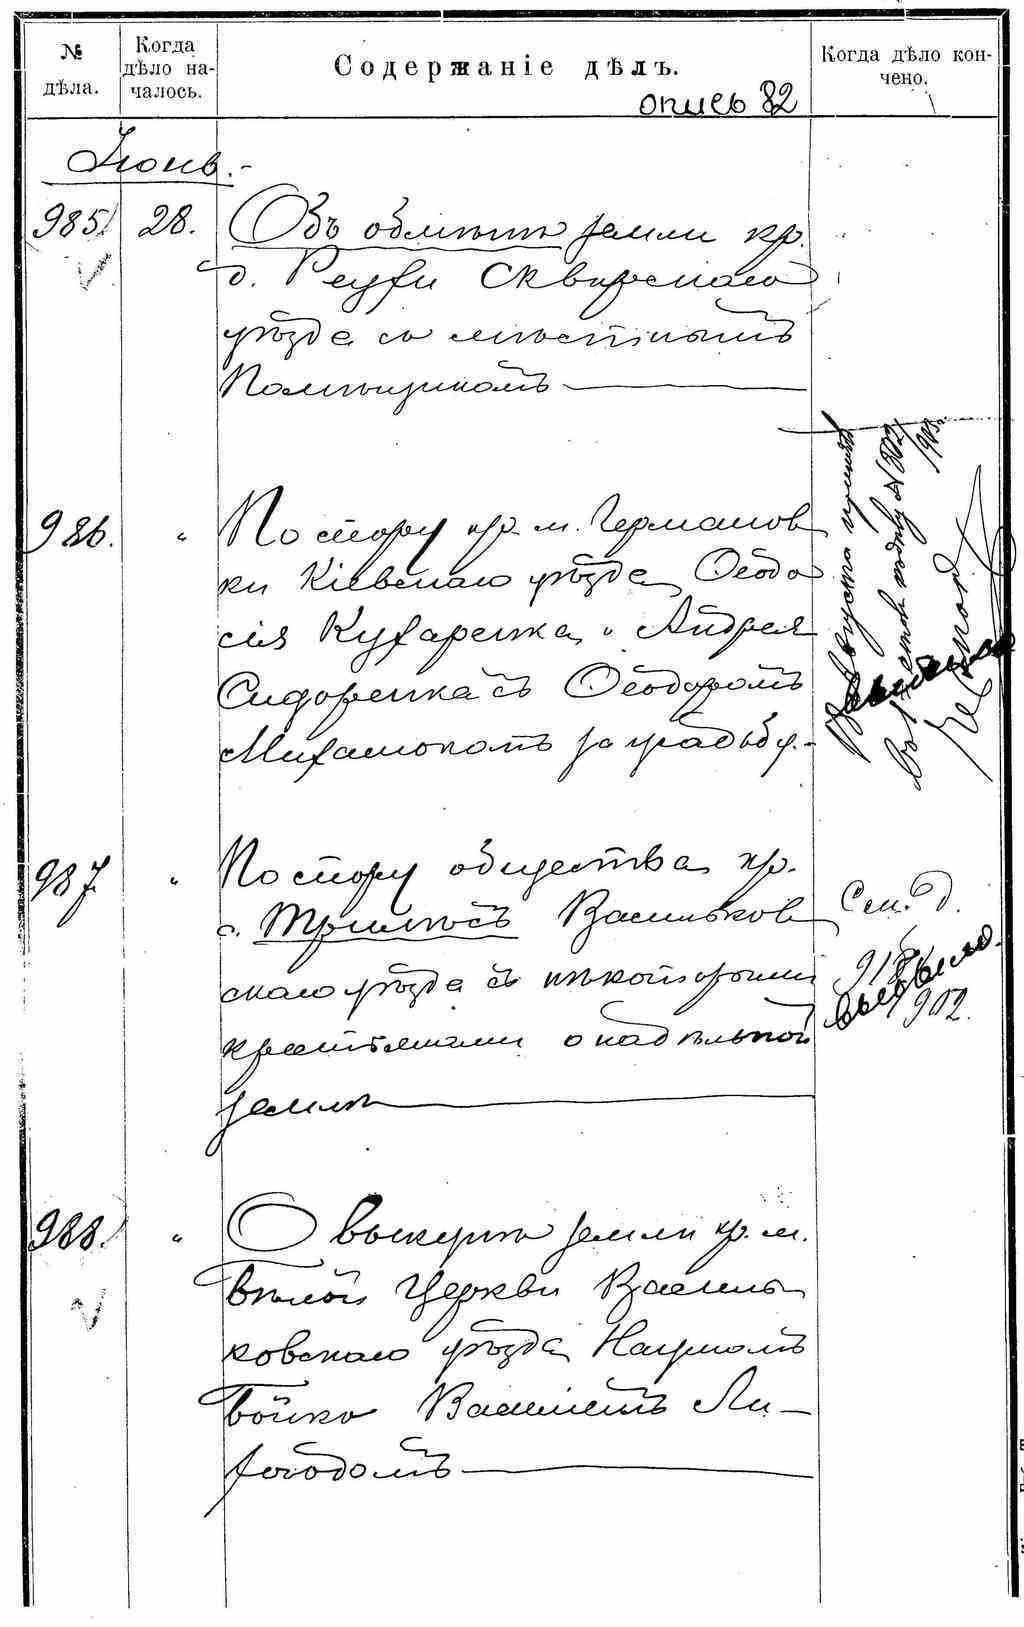 № дѣла.
Когда дѣло на-
чалось.
Содержаніе дѣлъ.
Когда дѣло кон-
чено.
опись 82
Іюнь.-
985. 28. Объ обмѣнѣ земли кр.
д. Реухи Сквирскаго
уѣзда съ мѣстнымъ
Помѣщикомъ
986. " По спору кр. м. Германов
ки Кіевскаго уѣзда Ѳеодо
сія Кухаренка и Андрея
Сидоренка съ Ѳеодоромъ
Михалюкомъ за усадьбу.-
Августа
№ 302
1903
987. " По спору общества кр.
с. Трилѣсъ Васильков
скаго уѣзда съ нѣкоторыми
крестьянами о надѣльной
землѣ
См. д.
918
выбыло.
902.
988. " О выкупѣ земли кр. м.
Бѣлой Церкви Василь
ковскаго уѣзда Наумомъ
Бойко Василіемъ Ли-
ходомъ